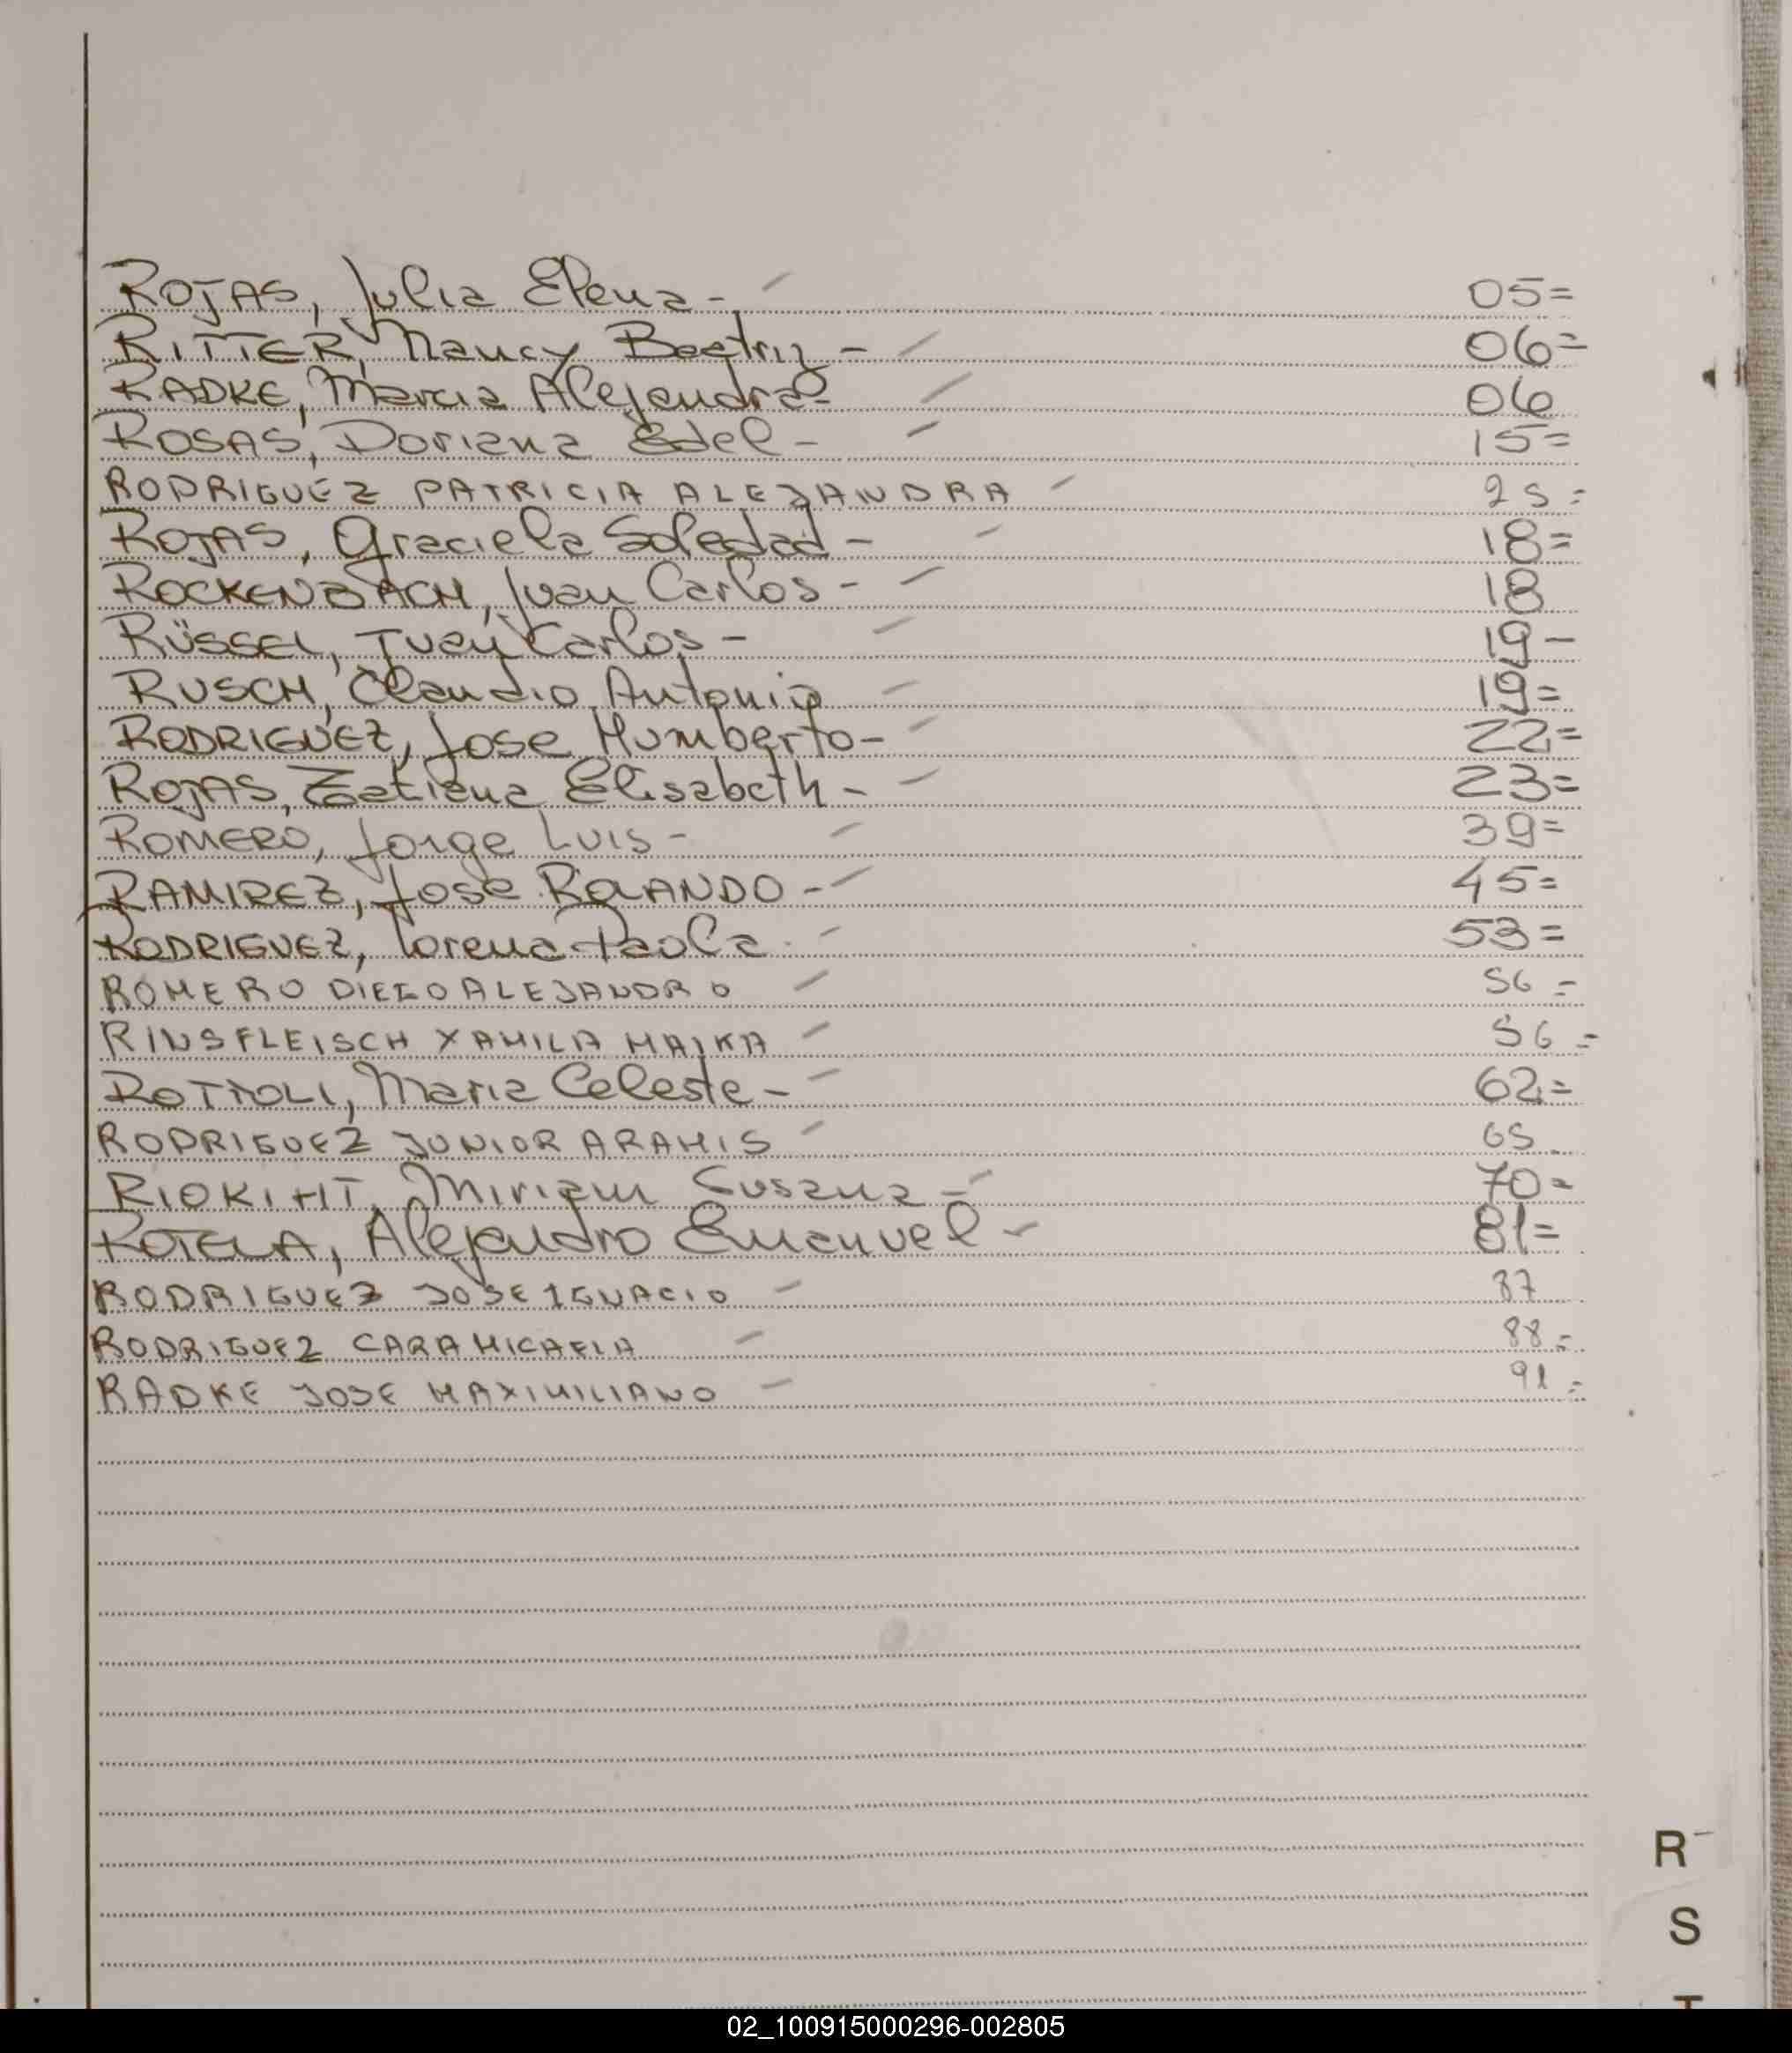 ROJAS, Julia Elena - 05=
RITTER, Nancy Beatriz - 06=
RADKE, Marcia Alejandra - 06
ROSAS, Doriana Edel - 15=
RODRIGUEZ PATRICIA ALEJANDRA 25=
ROJAS, Graciela Soledad - 18=
ROCKENBACH, Juan Carlos - 18
RÜSSEL, Juan Carlos - 19-
RUSCH, Claudio Antonio 19=
RODRIGUEZ, Jose Humberto - 22=
ROJAS, Tatiana Elisabeth - 23=
ROMERO, Jorge Luis - 39=
RAMIREZ, Jose ROLANDO - 45=
RODRIGUEZ, Lorena Paola 53=
ROMERO DIEGO ALEJANDRO 56=
RINSFLEISCH YAMILA 56=
ROTTOLI, Maria Celeste - 62=
RODRIGUEZ JUNIOR ARAMIS 65
Miriam Susana - 70=
ROTELA, Alejandro Emanuel - 81=
RODRIGUEZ JOSE IGNACIO 87
RODRIGUEZ CARA MICAELA 88=
RADKE JOSE MAXIMILIANO 91=
R
S
T
02_100915000296-002805